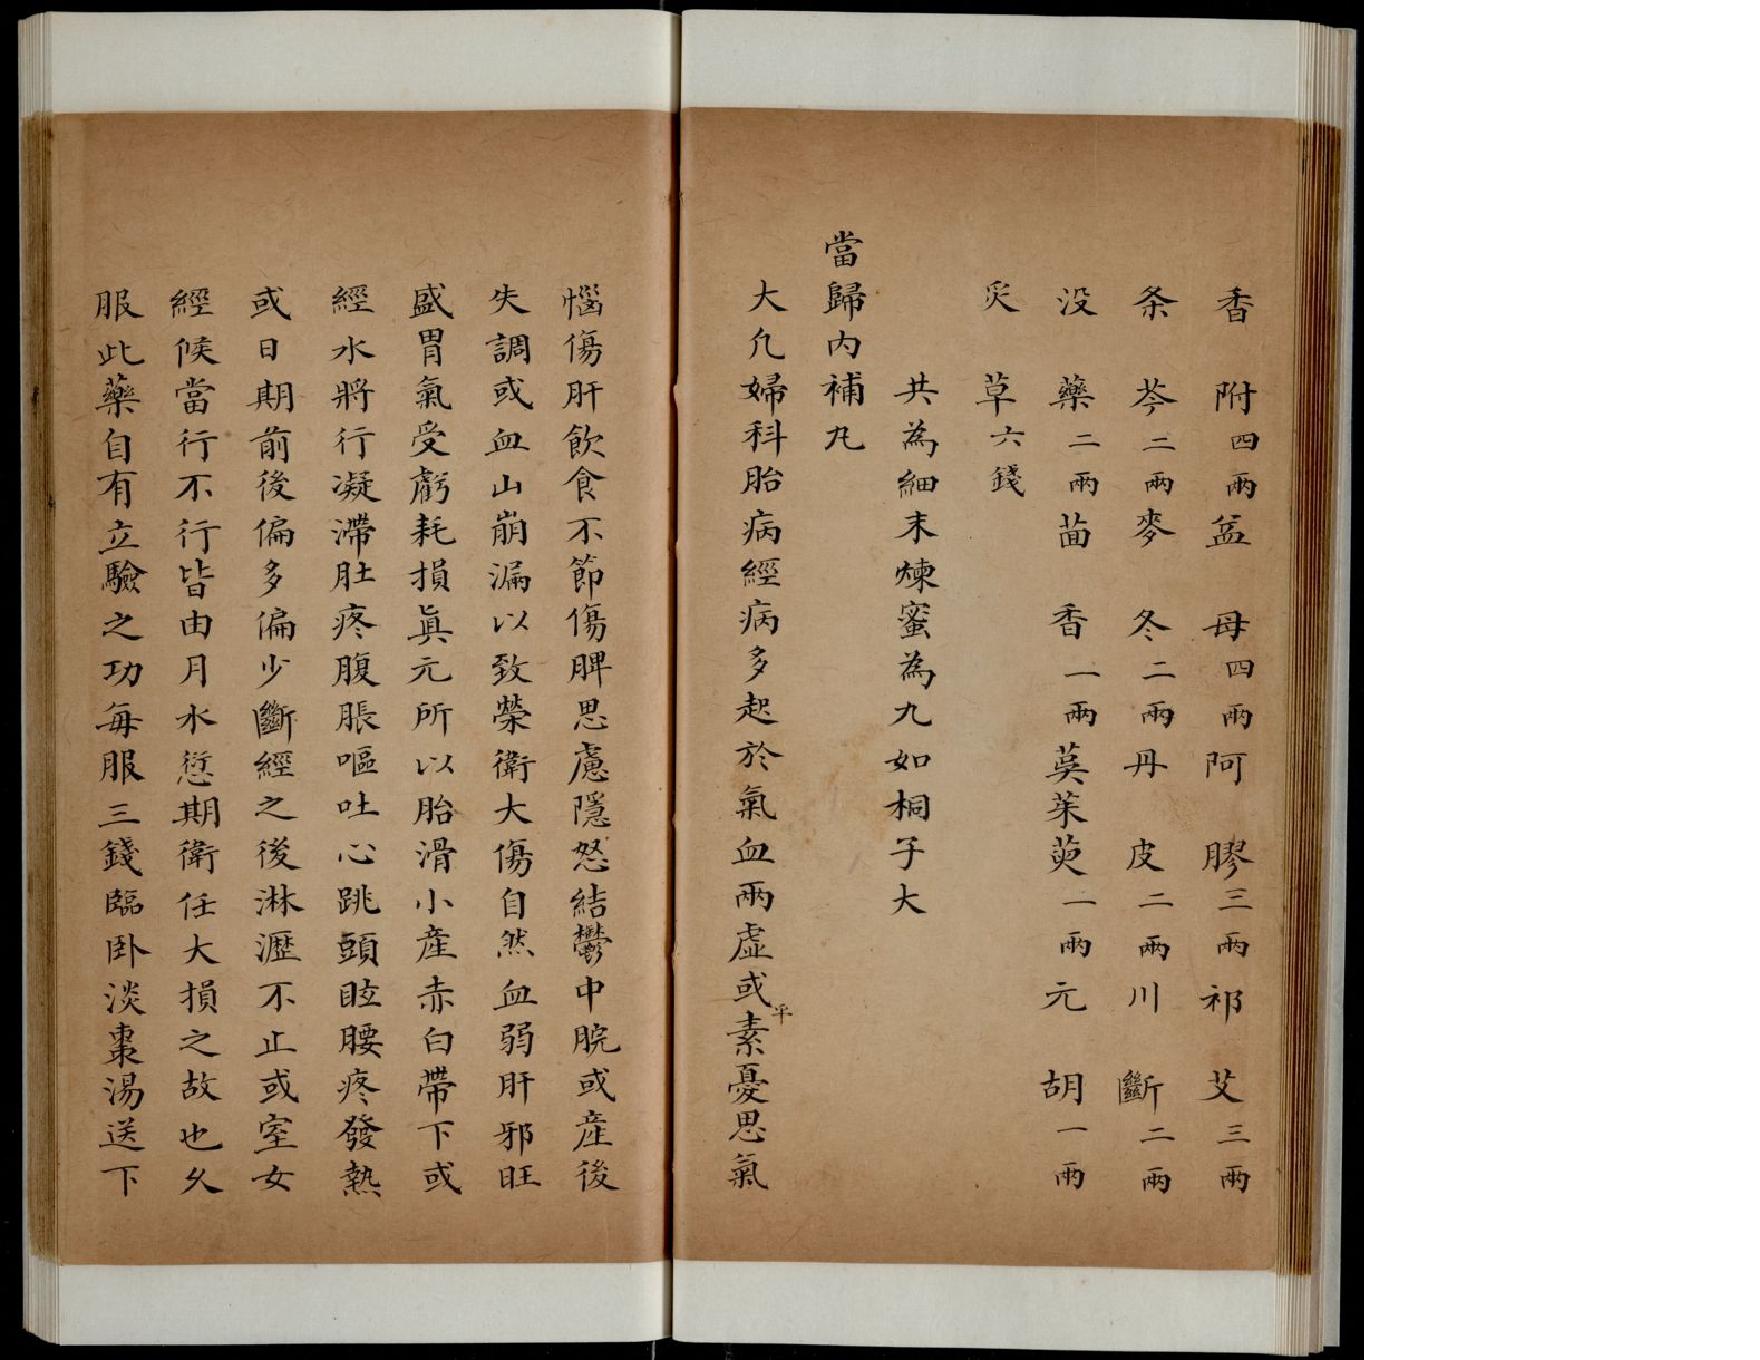 香附四兩益母四兩阿膠三兩祁艾三兩
条芩二兩麥冬二兩丹皮二兩川斷二兩
没藥二兩茴香一兩萸茱萸一兩元胡一兩
炙草六錢
共為細末煉蜜為九如桐子大
當歸內補九
大凢婦科胎病經病多起於氣血兩虛或平素憂思氣
惱傷肝飲食不節傷脾思慮隱怒結鬱中脘或産後
失調或血山崩漏以致榮衛大傷自然血弱肝邪旺
盛胃氣受虧耗損真元所以胎滑小産赤白帶下或
經水將行凝滯肚疼腹脹嘔吐心跳頭眩腰疼發熱
或日期前後偏多偏少斷經之後淋瀝不止或室女
經候當行不行皆由月水愆期衛任大損之故也久
服此藥自有立驗之功每服三錢臨卧淡棗湯送下